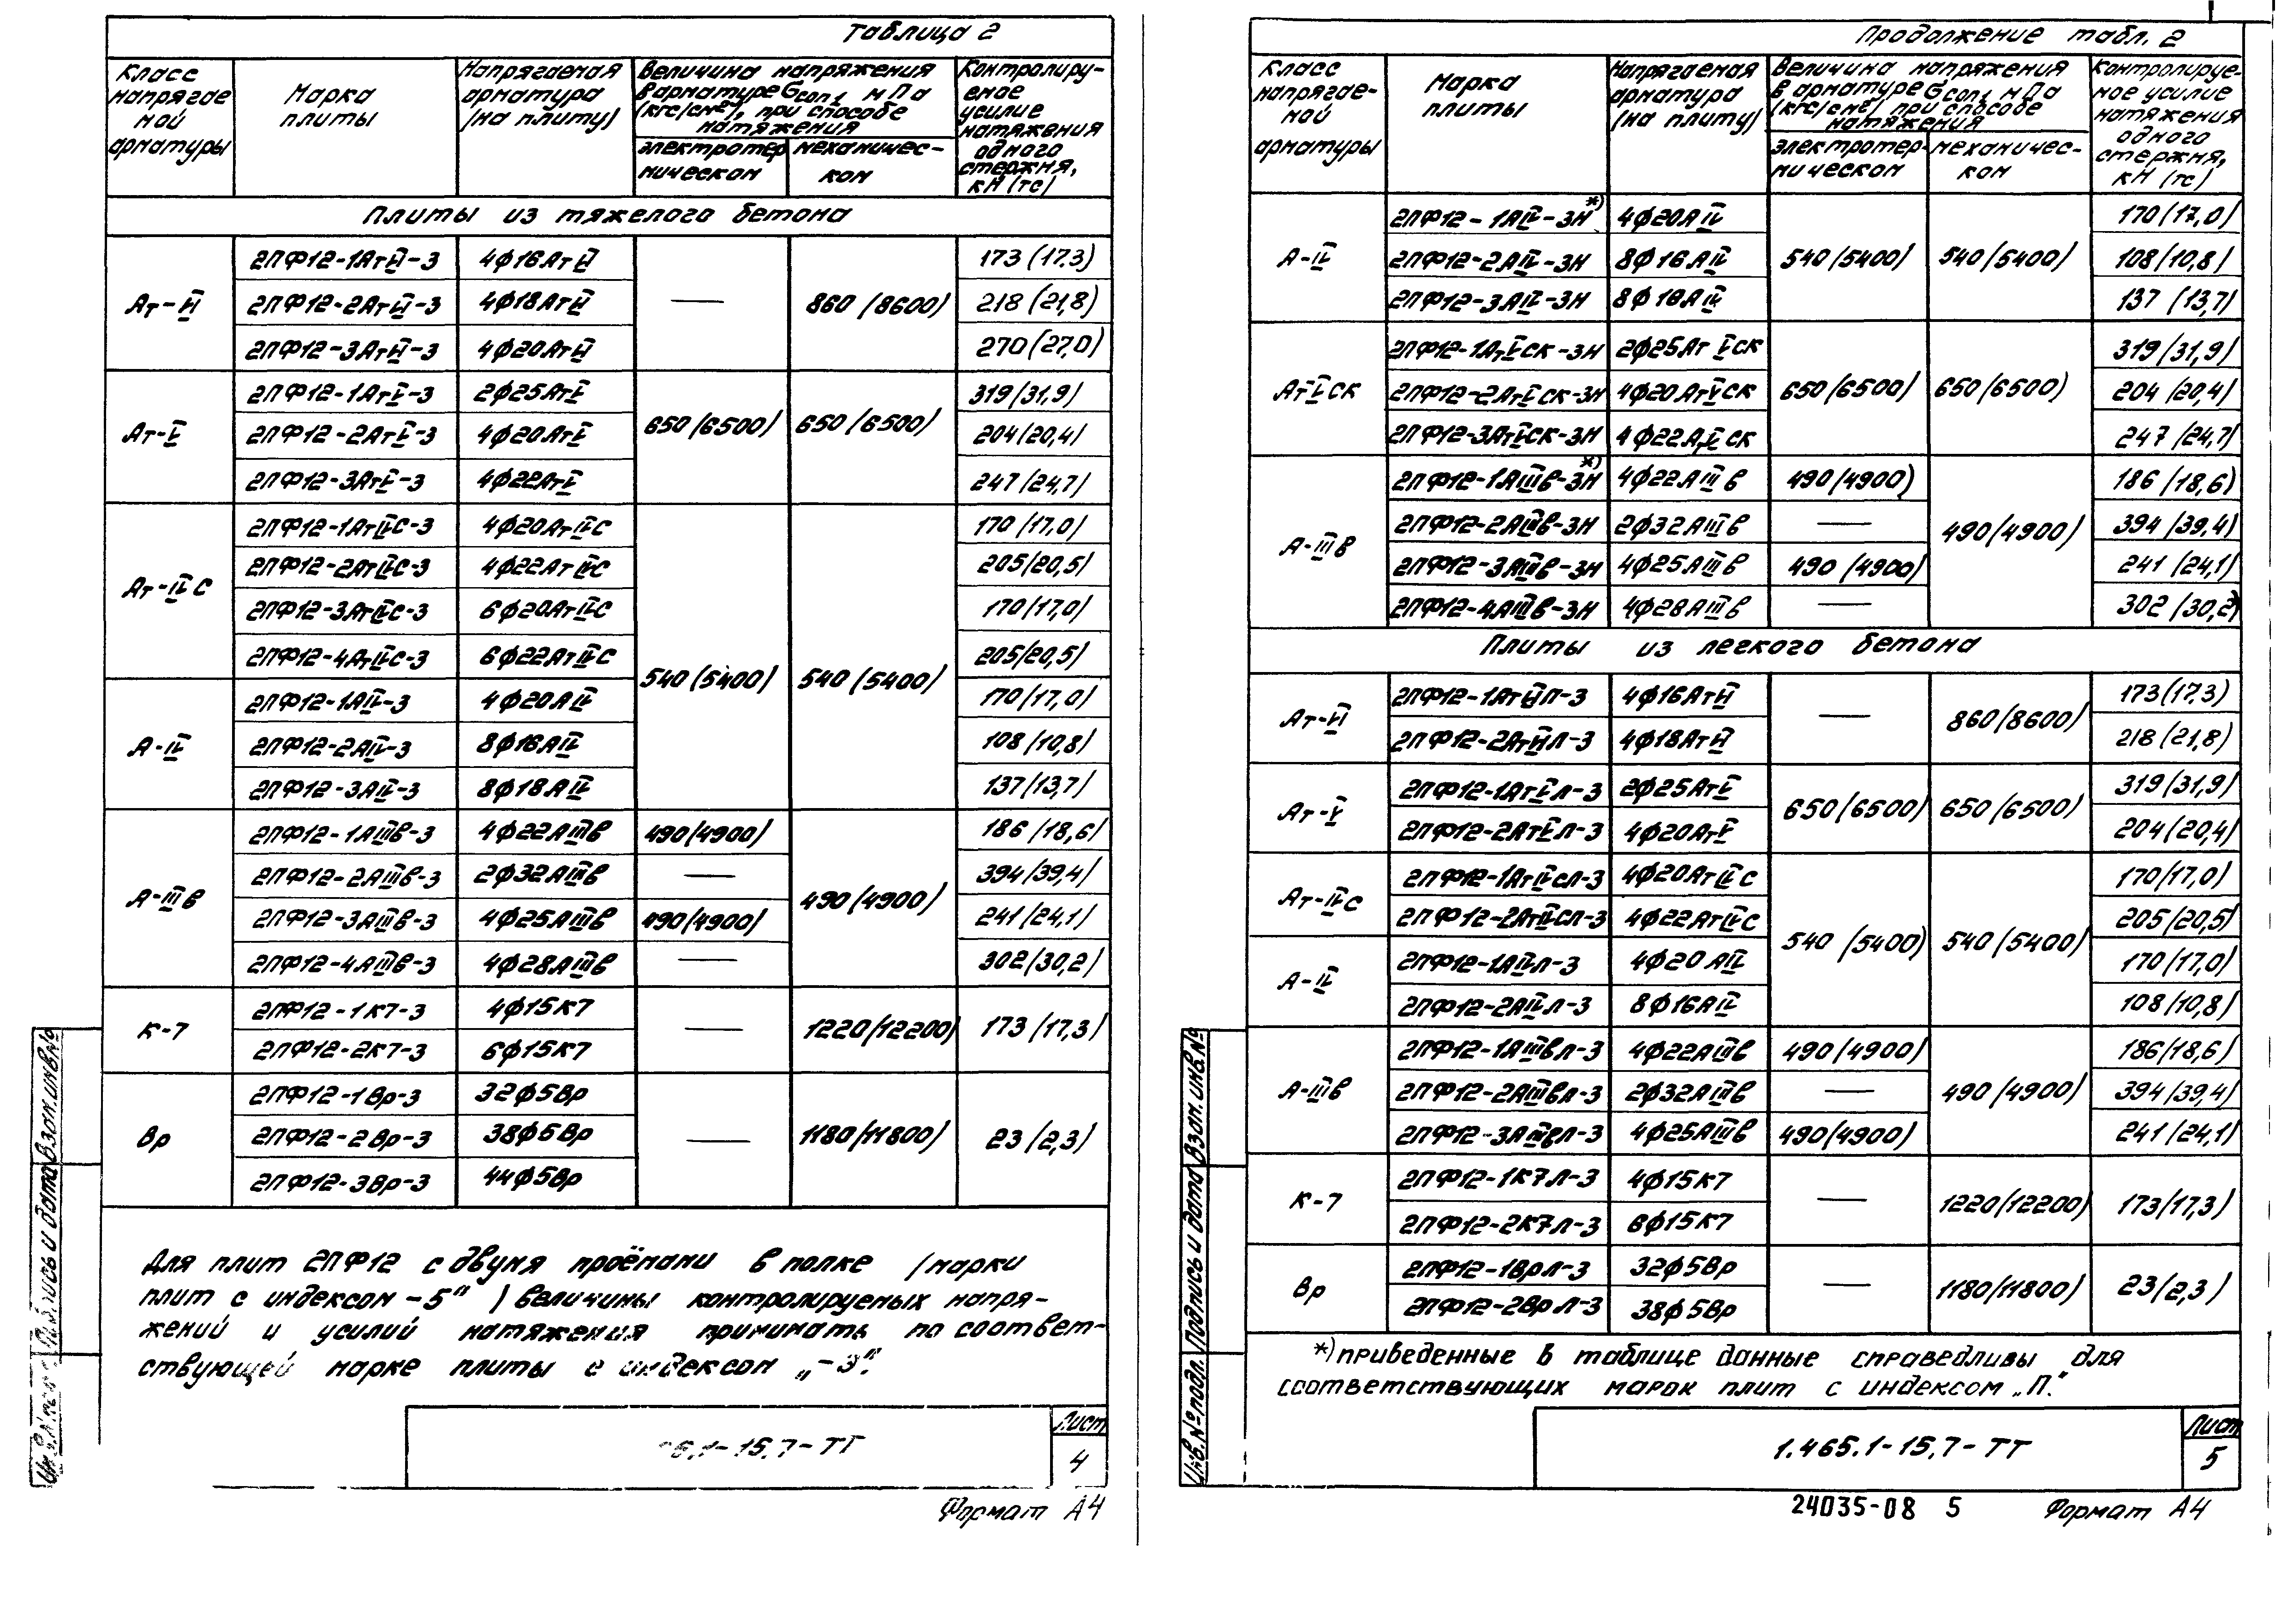 Таблица 2
Класс напрягаемой арматуры | Марка плиты | Напрягаемая арматура (на плиту) | Величина напряжения в арматуре Gcon1 МПа (кгс/см²), при способе натяжения | Контролируемое усилие натяжения одного стержня, кН (тс)
электротермическом | механическом
Плиты из тяжелого бетона
Ат-VI | 2ПФ12-1АтVI-3 | 4ф16АтVI | — | 860 (8600) | 173 (17.3)
2ПФ12-2АтVI-3 | 4ф18АтVI | 218 (21,8)
2ПФ12-3АтVI-3 | 4ф20АтVI | 270 (27,0)
Ат-V | 2ПФ12-1АтV-3 | 2ф25АтV | 650 (6500) | 650 (6500) | 319 (31,9)
2ПФ12-2АтV-3 | 4ф20АтV | 204 (20,4)
2ПФ12-3АтV-3 | 4ф22АтV | 247 (24,7)
Ат-IVС | 2ПФ12-1АтIVС-3 | 4ф20АтIVС | 540 (5400) | 540 (5400) | 170 (17,0)
2ПФ12-2АтIVС-3 | 4ф22АтIVС | 205 (20,5)
2ПФ12-3АтIVС-3 | 6ф20АтIVС | 170 (17,0)
2ПФ12-4АтIVС-3 | 6ф22АтIVС | 205 (20,5)
А-IV | 2ПФ12-1АIV-3 | 4ф20АIV | 170 (17,0)
2ПФ12-2АIV-3 | 8ф16АIV | 108 (10,8)
2ПФ12-3АIV-3 | 8ф18АIV | 137 (13,7)
А-IIIв | 2ПФ12-1АIIIв-3 | 4ф22АIIIв | 490 (4900) | 490 (4900) | 186 (18,6)
2ПФ12-2АIIIв-3 | 2ф32АIIIв | — | 394 (39,4)
2ПФ12-3АIIIв-3 | 4ф25АIIIв | 490 (4900) | 241 (24,1)
2ПФ12-4АIIIв-3 | 4ф28АIIIв | — | 302 (30,2)
К-7 | 2ПФ12-1К7-3 | 4ф15К7 | — | 1220 (12200) | 173 (17,3)
2ПФ12-2К7-3 | 6ф15К7
Вр | 2ПФ12-1Вр-3 | 32ф5Вр | — | 1180 (11800) | 23 (2,3)
2ПФ12-2Вр-3 | 38ф5Вр
2ПФ12-3Вр-3 | 44ф5Вр
Для плит 2ПФ12 с двумя проёмами в полке (марки
плит с индексом -5") величины контролируемых напря-
жений и усилий натяжения принимать по соответ-
ствующей марке плиты с индексом „-3".
5.1-15.7-ТТ
Лист
4
Формат А4
Взам. инв.№
Подпись и дата
Продолжение табл. 2
Класс напрягаемой арматуры | Марка плиты | Напрягаемая арматура (на плиту) | Величина напряжения в арматуре Gcon1 МПа (кгс/см²) при способе натяжения | Контролируемое усилие натяжения одного стержня, кН (тс)
электротермическом | механическом
А-IV | 2ПФ12-1АIV-3Н*) | 4ф20АIV | 540 (5400) | 540 (5400) | 170 (17,0)
2ПФ12-2АIV-3Н | 8ф16АIV | 108 (10,8)
2ПФ12-3АIV-3Н | 8ф18АIV | 137 (13,7)
АтVСК | 2ПФ12-1АтVСК-3Н | 2ф25АтVСК | 650 (6500) | 650 (6500) | 319 (31,9)
2ПФ12-2АтVСК-3Н | 4ф20АтVСК | 204 (20,4)
2ПФ12-3АтVСК-3Н | 4ф22АтVСК | 247 (24,7)
А-IIIв | 2ПФ12-1АIIIв-3Н*) | 4ф22АIIIв | 490 (4900) | 490 (4900) | 186 (18,6)
2ПФ12-2АIIIв-3Н | 2ф32АIIIв | — | 394 (39,4)
2ПФ12-3АIIIв-3Н | 4ф25АIIIв | 490 (4900) | 241 (24,1)
2ПФ12-4АIIIв-3Н | 4ф28АIIIв | — | 302 (30,2)
Плиты из легкого бетона
Ат-VI | 2ПФ12-1АтVIЛ-3 | 4ф16АтVI | — | 860 (8600) | 173 (17.3)
2ПФ12-2АтVIЛ-3 | 4ф18АтVI | 218 (21,8)
Ат-V | 2ПФ12-1АтVЛ-3 | 2ф25АтV | 650 (6500) | 650 (6500) | 319 (31,9)
2ПФ12-2АтVЛ-3 | 4ф20АтV | 204 (20,4)
Ат-IVС | 2ПФ12-1АтIVСЛ-3 | 4ф20АтIVС | 540 (5400) | 540 (5400) | 170 (17,0)
2ПФ12-2АтIVСЛ-3 | 4ф22АтIVС | 205 (20,5)
А-IV | 2ПФ12-1АIVЛ-3 | 4ф20АIV | 170 (17,0)
2ПФ12-2АIVЛ-3 | 8ф16АIV | 108 (10,8)
А-IIIв | 2ПФ12-1АIIIвЛ-3 | 4ф22АIIIв | 490 (4900) | 490 (4900) | 186 (18,6)
2ПФ12-2АIIIвЛ-3 | 2ф32АIIIв | — | 394 (39,4)
2ПФ12-3АIIIвЛ-3 | 4ф25АIIIв | 490 (4900) | 241 (24,1)
К-7 | 2ПФ12-1К7Л-3 | 4ф15К7 | — | 1220 (12200) | 173 (17,3)
2ПФ12-2К7Л-3 | 6ф15К7
Вр | 2ПФ12-1ВрЛ-3 | 32ф5Вр | — | 1180 (11800) | 23 (2,3)
2ПФ12-2ВрЛ-3 | 38ф5Вр
*) приведенные в таблице данные справедливы для
соответствующих марок плит с индексом „П."
1.465.1-15.7-ТТ
Лист
5
24035-08 5
Формат А4
Взам. инв.№
Подпись и дата
Инв.№ подл.